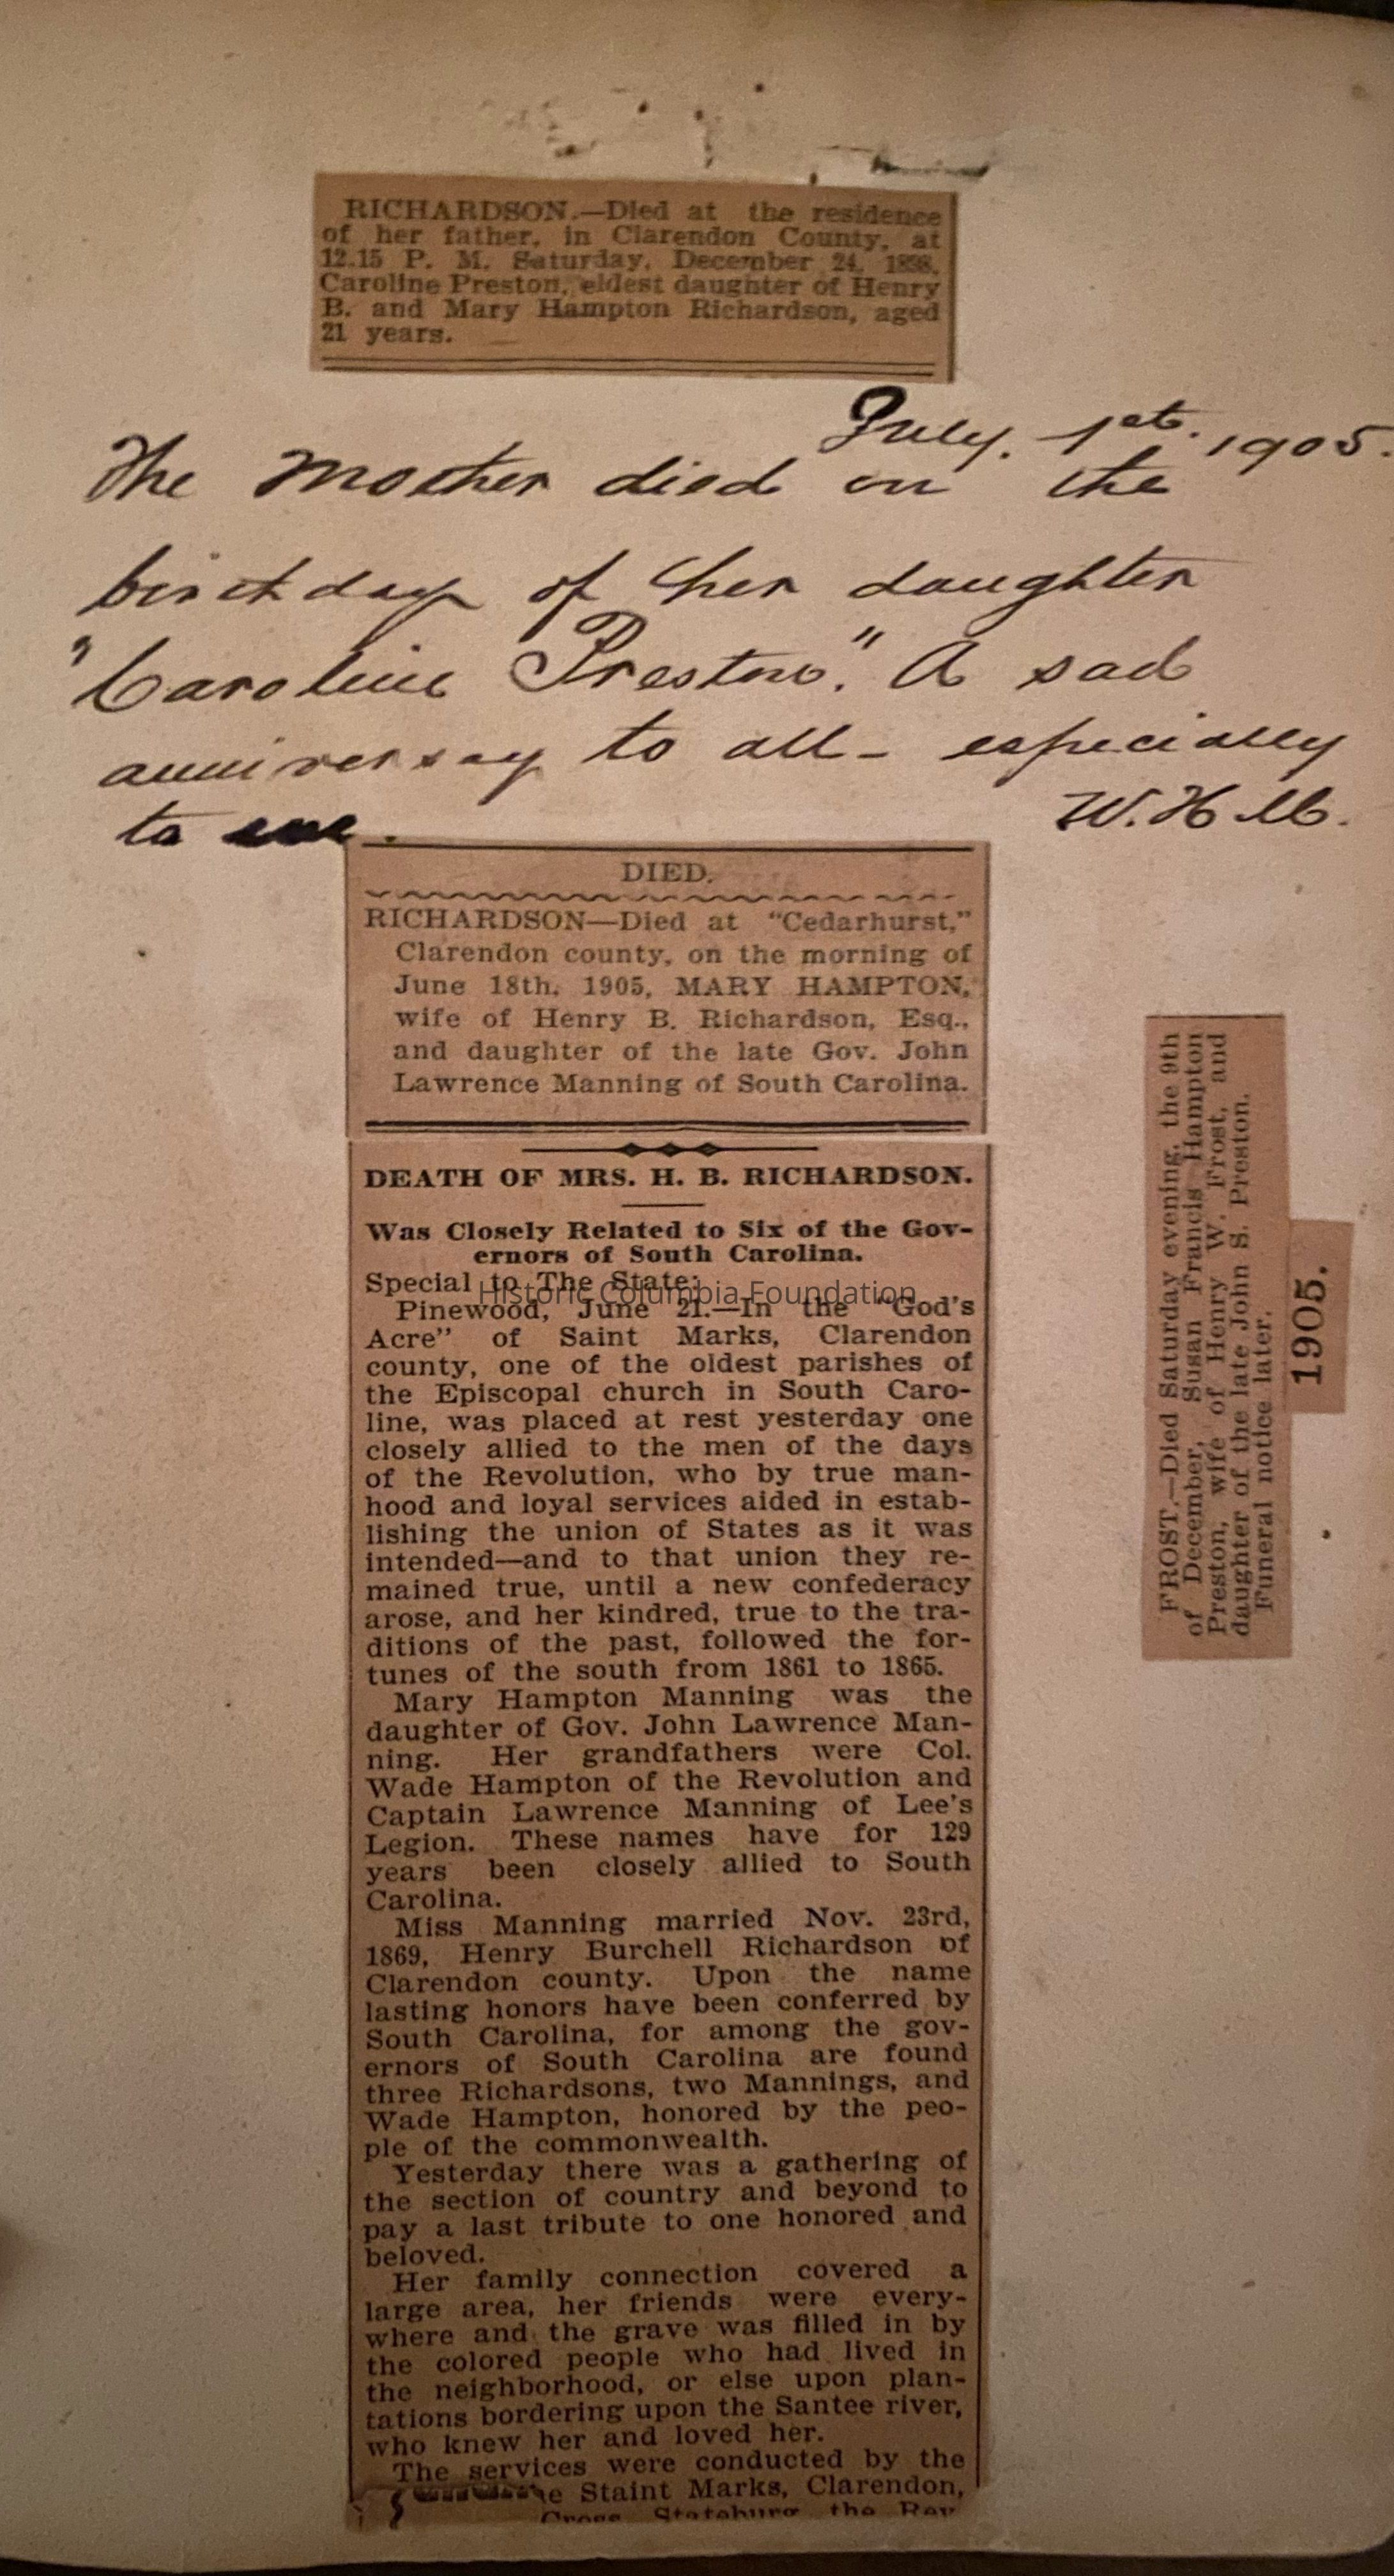 RICHARDSON.—Died at the residence
of her father, in Clarendon County, at
12.15 P. M. Saturday, December 24, 1898,
Caroline Preston, eldest daughter of Henry
B. and Mary Hampton Richardson, aged
21 years.
July. 1st. 1905.
The Mother died on the
birthday of her daughter
"Caroline Preston." A sad
anniversay to all - especially
to
W. H M.
DIED.
RICHARDSON—Died at "Cedarhurst,"
Clarendon county, on the morning of
June 18th, 1905, MARY HAMPTON,
wife of Henry B. Richardson, Esq.,
and daughter of the late Gov. John
Lawrence Manning of South Carolina.
DEATH OF MRS. H. B. RICHARDSON.
Was Closely Related to Six of the Gov-
ernors of South Carolina.
Special to The State:
Historic Columbia Foundation
Pinewood, June 21.—In the "God's
Acre" of Saint Marks, Clarendon
county, one of the oldest parishes of
the Episcopal church in South Caro-
line, was placed at rest yesterday one
closely allied to the men of the days
of the Revolution, who by true man-
hood and loyal services aided in estab-
lishing the union of States as it was
intended—and to that union they re-
mained true, until a new confederacy
arose, and her kindred, true to the tra-
ditions of the past, followed the for-
tunes of the south from 1861 to 1865.
Mary Hampton Manning was the
daughter of Gov. John Lawrence Man-
ning. Her grandfathers were Col.
Wade Hampton of the Revolution and
Captain Lawrence Manning of Lee's
Legion. These names have for 129
years been closely allied to South
Carolina.
Miss Manning married Nov. 23rd,
1869, Henry Burchell Richardson of
Clarendon county. Upon the name
lasting honors have been conferred by
South Carolina, for among the gov-
ernors of South Carolina are found
three Richardsons, two Mannings, and
Wade Hampton, honored by the peo-
ple of the commonwealth.
Yesterday there was a gathering of
the section of country and beyond to
pay a last tribute to one honored and
beloved.
Her family connection covered a
large area, her friends were every-
where and the grave was filled in by
the colored people who had lived in
the neighborhood, or else upon plan-
tations bordering upon the Santee river,
who knew her and loved her.
The services were conducted by the
Staint Marks, Clarendon,
Cross, Stateburg, the Rev.
FROST.—Died Saturday evening, the 9th
of December, Susan Francis Hampton
Preston, wife of Henry W. Frost, and
daughter of the late John S. Preston.
Funeral notice later.
1905.